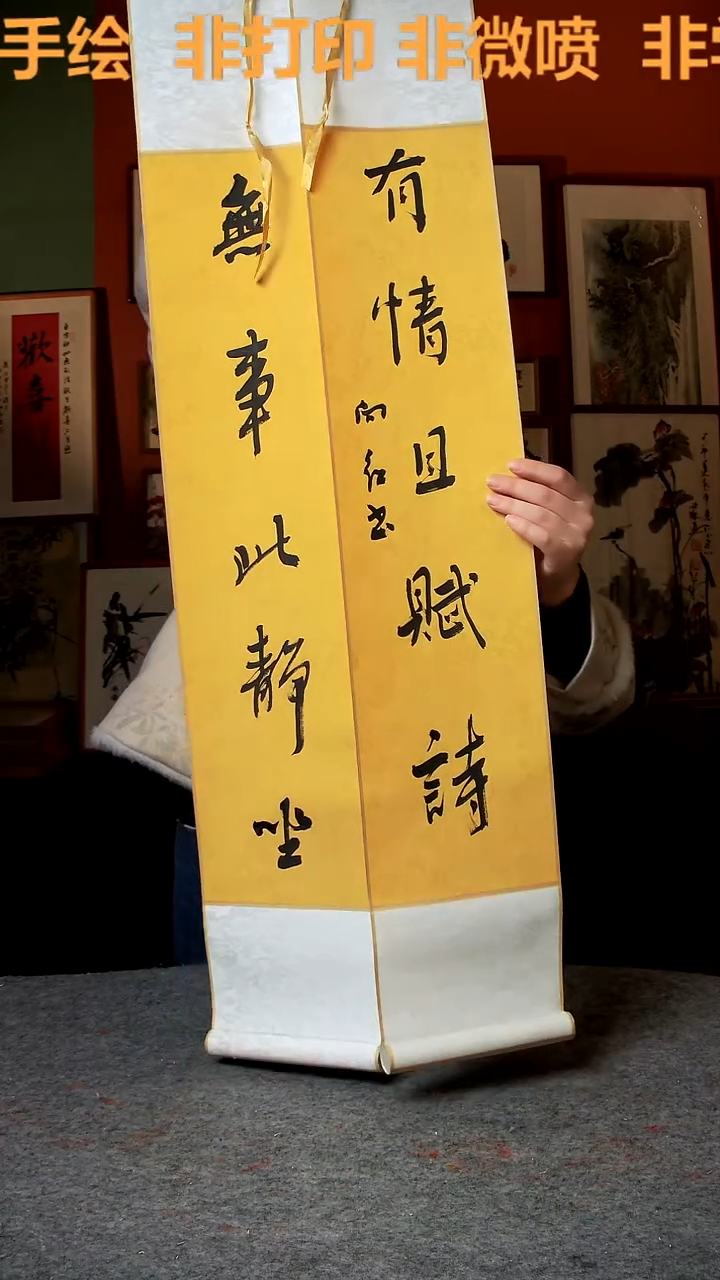 手绘 非打印 非微喷 非
有情且赋詩
無事此静坐
向红书
歡喜